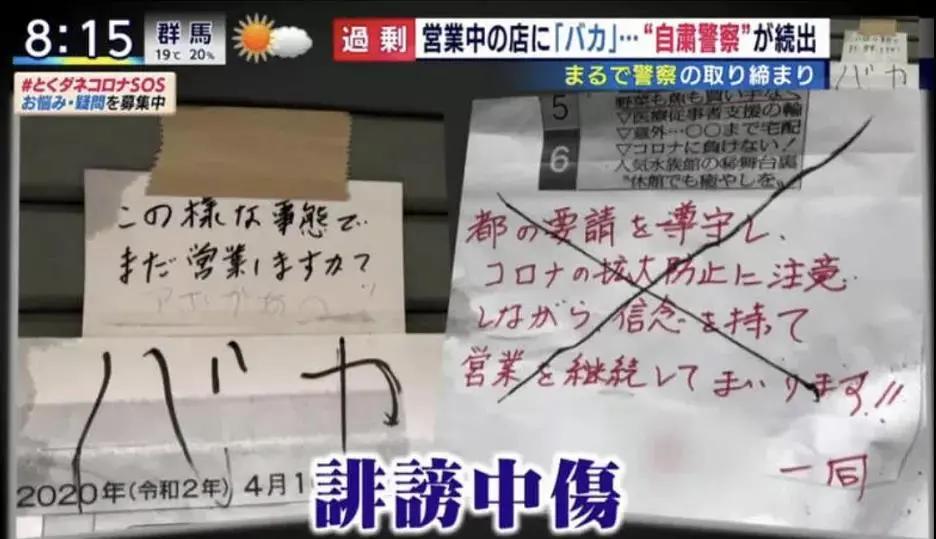 8:15
群馬
19℃ 20%
過剰
営業中の店に「バカ」…“自粛警察”が続出
まるで警察の取り締まり
#とくダネコロナSOS
お悩み・疑問を募集中
バカ
この様な事態で
まだ営業しますか?
バカ
2020年(令和2年) 4月1
5
野菜も魚も買い手なく
▽医療従事者支援の輪
▽意外…〇〇まで宅配
6
▽コロナに負けない!
人気水族館の㊙舞台裏
“休館でも癒やしを〟
都の要請を尊守し、
コロナの拡大防止に注意
しながら信念を持って
営業を継続してまいります!!
一同
誹謗中傷